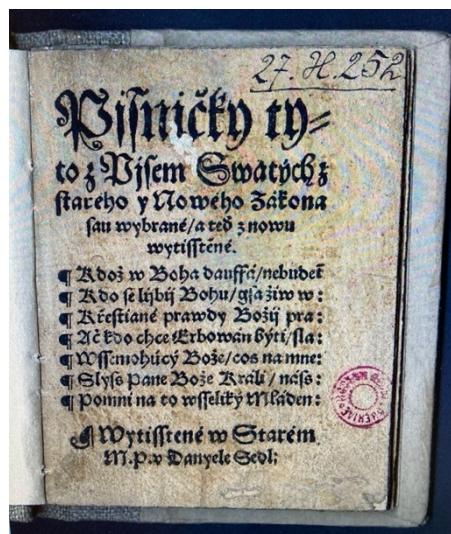 27. H. 252
Pjsničky ty⸗
to z Pjsem Swatých z
starého y Nowého Zákona
sau wybrané/a teď znowu
wytisstěné.
¶ Kdož w Boha dauffá/nebudeť
¶ Kdo se lijbij Bohu/gsa žiw w:
¶ Křestiané prawdy Božij pra:
¶ Ač kdo chce Erbowan býti/sla:
¶ Wssemohúcý Bože/cos na mne:
¶ Slyss Pane Bože Králi/náss:
¶ Pomni na to wsseliký Mláden:
¶ Wytisstené w Starém
M.P.v Danyele Sedl: